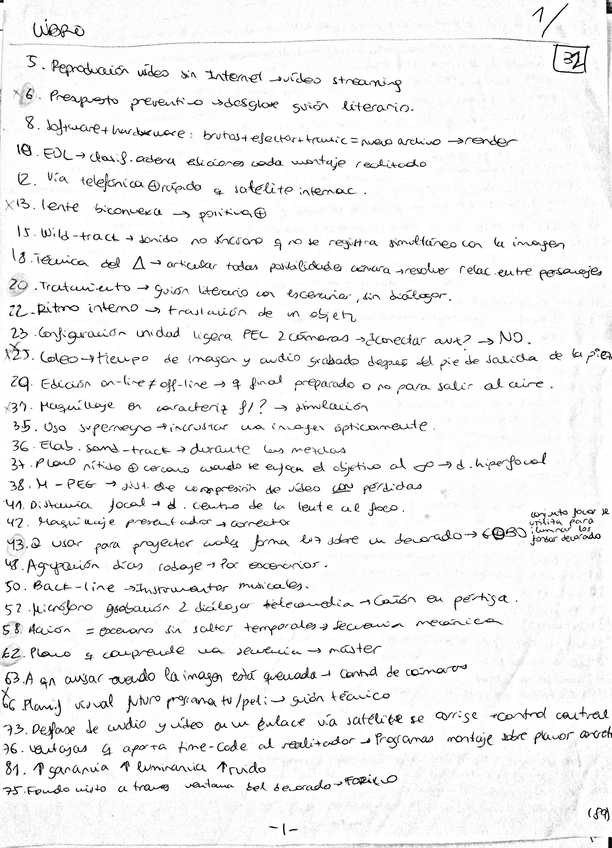 LIBRO
1/
32
5. Reproducción vídeo sin Internet → vídeo streaming
x6. Presupuesto preventivo → desglose guión literario.
8. Software + hardware: brutos + efectos + transic = nuevo archivo → render
10. EDL → clasif. ordena ediciones cada montaje realizado
12. Vía telefónica ⊕ rápido q satélite internac.
x13. Lente biconvexa → positiva ⊕
15. Wild-track → sonido no síncrono q no se registra simultáneo con la imagen
18. Técnica del Δ → articular todas posibilidades cámara → resolver relac. entre personajes
20. Tratamiento → guión literario con escenarios, sin diálogos.
22. Ritmo interno → traslación de un objeto
23. Configuración unidad ligera PEL 2 cámaras → ¿conectar aux? → NO.
x25. Coleo → tiempo de imagen y audio grabado después del pie de salida de la pieza
29. Edición on-line ≠ off-line → q final preparado o no para salir al aire.
x31. Maquillaje en caracteriz f/? → simulación
35. Uso supernegro → incrustar una imagen ópticamente.
36. Elab. sound-track → durante las mezclas
37. Plano nítido ⊕ cercano cuando se enfoca el objetivo al ∞ → d. hiperfocal
38. M-PEG → sist. de compresión de vídeo con pérdidas
41. Distancia focal → d. centro de la lente al foco.
42. Maquillaje presentador → corrector
conjunto focos se utiliza para iluminar los fondos decorado
43. Q usar para proyectar cuales forma luz sobre un decorado →
48. Agrupación días rodaje → Por escenarios.
50. Back-line → Instrumentos musicales.
52. Micrófono grabación 2 diálogos telecomedia → Cañón en pértiga.
58. Acción = escenario sin saltos temporales → secuencia mecánica
62. Plano q comprende una secuencia → máster
63. A qn avisar cuando la imagen está quemada → control de cámaras
x66. Planif visual futuro programa tv/peli → guión técnico
73. Desfase de audio y vídeo en un enlace vía satélite se corrige → control central
76. Ventajas q aporta time-code al realizador → Programas montaje sobre planos
81. ↑ ganancia ↑ luminancia ↑ ruido
75. Fondo visto a través ventana del decorado → FORILLO
(89)
-1-